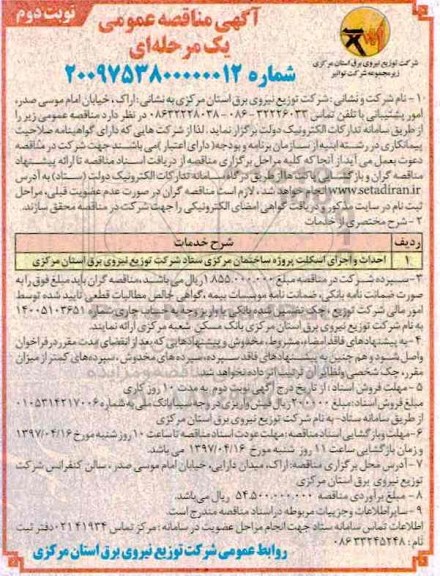 نوبت دوم
آگهی مناقصه عمومی
یک مرحله‌ای
شماره ۲۰۰۹۷۵۳۸۰۰۰۰۰۰۱۲
شرکت توزیع نیروی برق استان مرکزی
زیرمجموعه شرکت توانیر
۱- نام شرکت و نشانی: شرکت توزیع نیروی برق استان مرکزی به نشانی: اراک، خیابان امام موسی صدر،
امور پشتیبانی با تلفن تماس ۳۲۲۲۶۰۳۳-۰۸۶ - ۰۸۶۳۲۲۲۸۰۳۸ در نظر دارد مناقصه عمومی زیر را
از طریق سامانه تدارکات الکترونیک دولت برگزار نماید. لذا از شرکت هایی که دارای گواهینامه صلاحیت
پیمانکاری در رشته ابنیه از سازمان برنامه و بودجه (دارای اعتبار) می باشند جهت شرکت در مناقصه
دعوت بعمل می آید از آنجا که کلیه مراحل برگزاری مناقصه از دریافت اسناد مناقصه تا ارائه پیشنهاد
مناقصه گران و بازگشایی پاکت ها از طریق درگاه سامانه تدارکات الکترونیک دولت (ستاد) به آدرس
www.setadiran.ir انجام خواهد شد، لازم است مناقصه گران در صورت عدم عضویت قبلی، مراحل
ثبت نام در سایت مذکور و دریافت گواهی امضای الکترونیکی را جهت شرکت در مناقصه محقق سازند.
۲- شرح مختصری از خدمات
ردیف شرح خدمات
۱ احداث و اجرای اسکلت پروژه ساختمان مرکزی ستاد شرکت توزیع نیروی برق استان مرکزی
۳- سپرده شرکت در مناقصه مبلغ ۱.۸۵۵.۰۰۰.۰۰۰ ریال می باشد، مناقصه گران باید مبلغ فوق را به
صورت ضمانت نامه بانکی، ضمانت نامه موسسات بیمه، گواهی خالص مطالبات قطعی تایید شده توسط
امور مالی شرکت توزیع، چک تضمین شده بانکی یا واریز وجه به حساب جاری شماره ۱۴۰۰۵۱۰۳۶۵۱
به نام شرکت توزیع نیروی برق استان مرکزی بانک مسکن شعبه مرکزی ارائه نمایند.
۴- به پیشنهادهای فاقد امضاء، مشروط، مخدوش و پیشنهادهایی که بعد از انقضای مدت مقرر در فراخوان
واصل شود و هم چنین به پیشنهادهای فاقد سپرده، سپرده های مخدوش، سپرده های کمتر از میزان
مقرر، چک شخصی ونظائر آن ترتیب اثر داده نخواهد شد.
۵- مهلت فروش اسناد: از تاریخ درج آگهی نوبت دوم به مدت ۱۰ روز کاری
مبلغ فروش اسناد: مبلغ ۲۰۰.۰۰۰ ریال فیش واریزی در وجه سیبا بانک ملی به شماره ۰۱۰۵۳۱۴۲۱۷۰۰۶
از طریق سامانه ستاد - به نام شرکت توزیع نیروی برق استان مرکزی
۶- مهلت و بازگشایی اسناد مناقصه: مهلت عودت اسناد مناقصه تا ساعت ۱۰ روز شنبه مورخ ۱۳۹۷/۰۴/۱۶
و زمان بازگشایی ساعت ۱۱ روز شنبه مورخ ۱۳۹۷/۰۴/۱۶ می باشد.
۷- آدرس محل برگزاری مناقصه: اراک، میدان دارایی، خیابان امام موسی صدر، سالن کنفرانس شرکت
توزیع نیروی برق استان مرکزی
۸- مبلغ برآوردی مناقصه ۵۴.۵۰۰.۰۰۰.۰۰۰ ریال می باشد.
۹- سایر اطلاعات و جزییات مربوطه در اسناد مناقصه مندرج است.
اطلاعات تماس سامانه ستاد جهت انجام مراحل عضویت در سامانه: مرکز تماس ۴۱۹۳۴-۰۲۱ دفتر ثبت
نام: ۰۸۶۳۳۲۴۵۲۴۸
روابط عمومی شرکت توزیع نیروی برق استان مرکزی